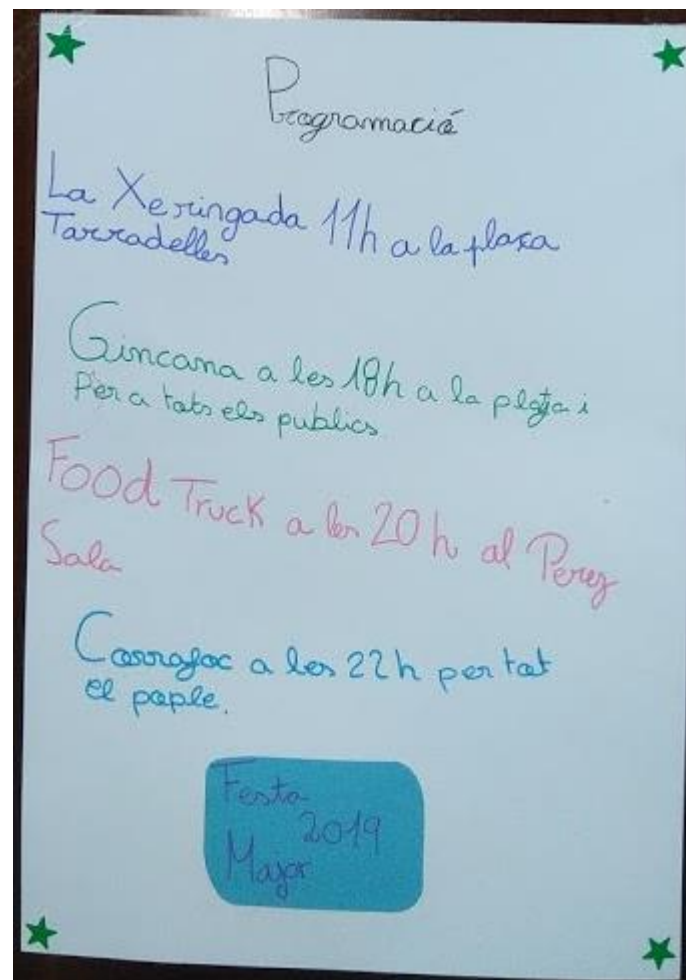 Programació
La Xeringada 11h a la plaça
Tarradelles
Gincana a les 18h a la platja i
Per a tots els publics
Food Truck a les 20h al Perez
Sala
Correfoc a les 22h per tot
el pople.
Festa
2019
Major